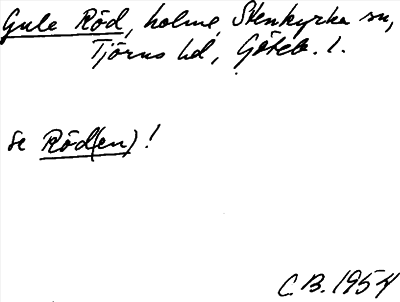 Gule Röd, holme, Stenkyrka sn,
Tjörns hd, Göteb. l.
se Röd(en)!
C.B. 1954